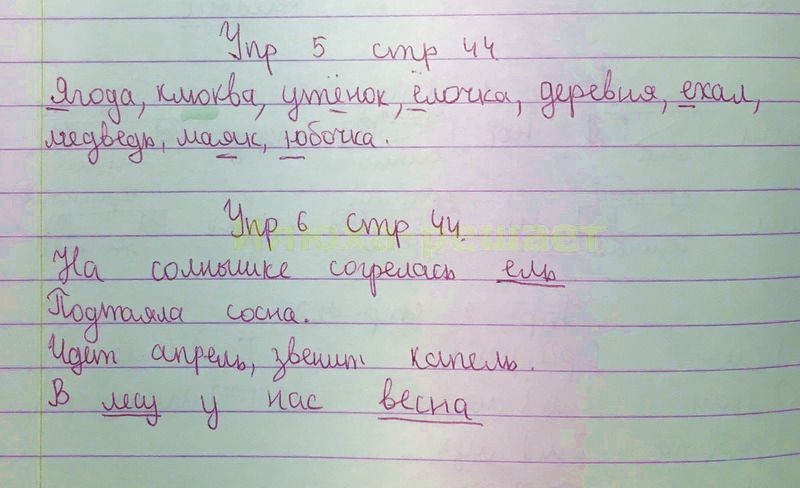 Упр 5 стр 44
Ягода, клюква, утёнок, ёлочка, деревня, ехал,
медведь, маяк, юбочка.
Упр 6 стр 44.
илюха-решает
На солнышке согрелась ель
Подтаяла сосна.
Идёт апрель, звенит капель.
В лесу у нас весна